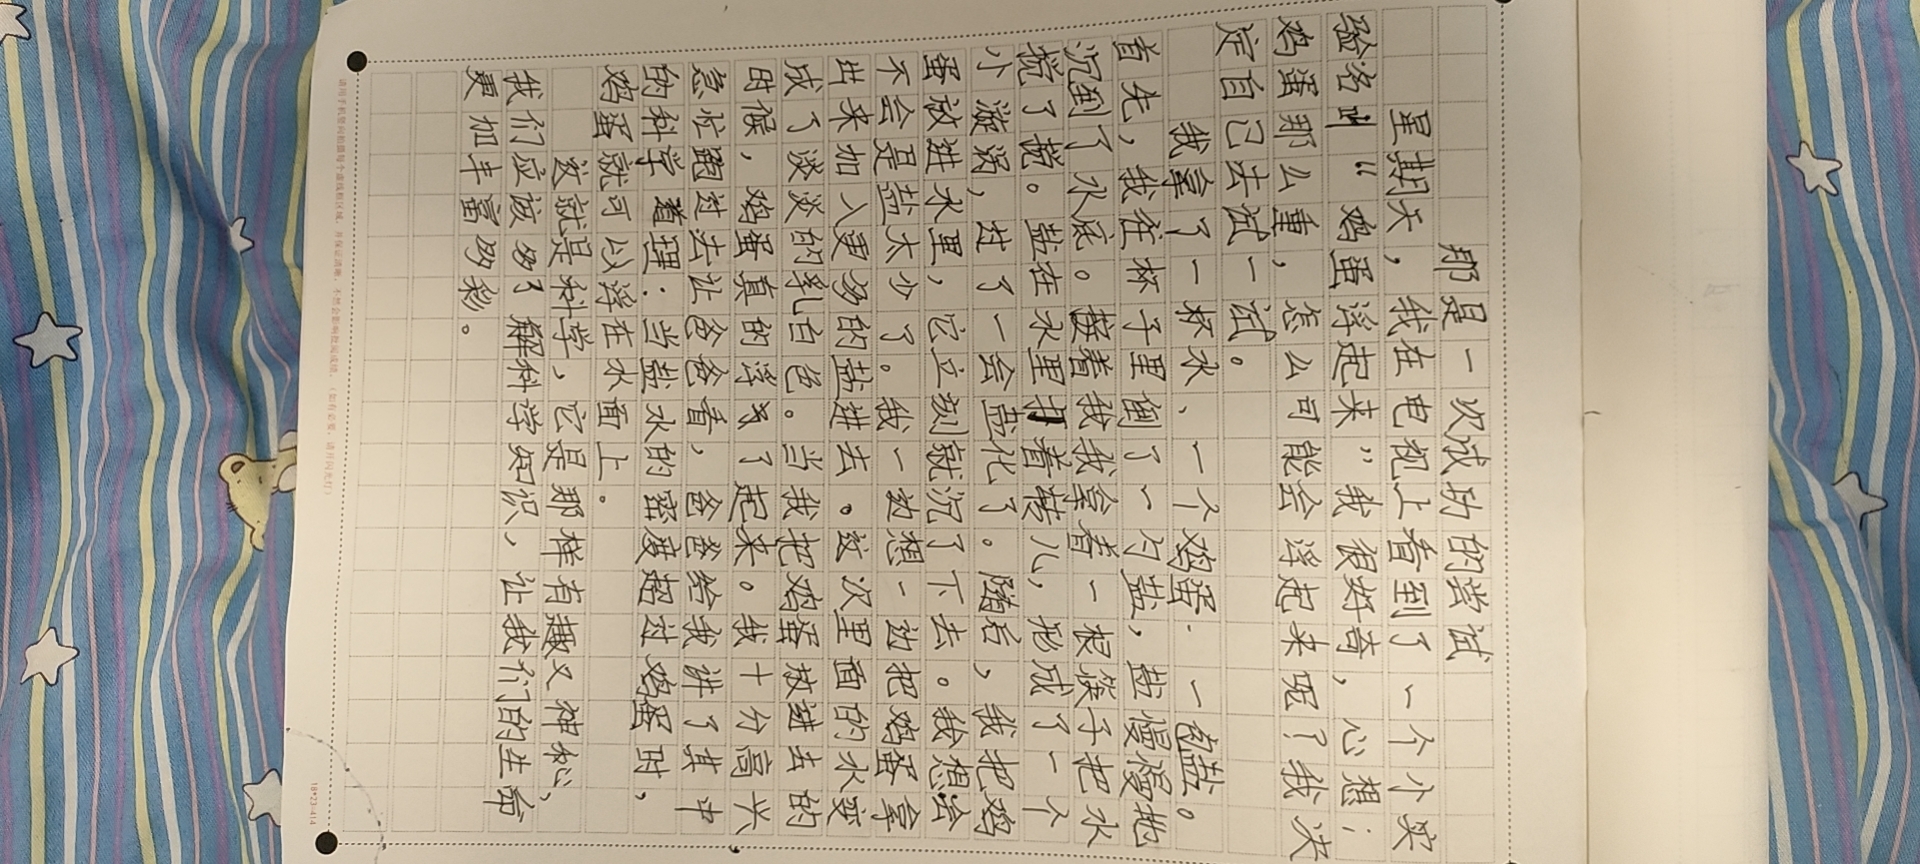 那是一次成功的尝试
星期天，我在电视上看到了一个小实
验名叫“鸡蛋浮起来”我很好奇，心想：
鸡蛋那么重，怎么可能会浮起来呢？我决
定自己去试一试。
我拿了一杯水、一个鸡蛋、一包盐。
首先，我往杯子里倒了一勺盐，盐慢慢地
沉到了水底。接着我我拿着一根筷子把水
搅了搅。盐在水里打着转儿，形成了一个
小漩涡，过了一会盐化了。随后，我把鸡
蛋放进水里，它立刻就沉了下去。我想会
不会是盐太少了。我一边想一边把鸡蛋拿
出来加入更多的盐进去。这次里面的水变
成了淡淡的乳白色。当我把鸡蛋放进去的
时候，鸡蛋真的浮了起来。我十分高兴
急忙跑过去让爸爸看，爸爸给我讲了其中
的科学道理：当盐水的密度超过鸡蛋时，
鸡蛋就可以浮在水面上。
这就是科学，它是那样有趣又神秘，
我们应该多了解科学知识，让我们的生命
更加丰富多彩。
请用手机竖向拍摄每个虚线框区域，并保证清晰，不然会影响批阅成绩。（如有必要，请开闪光灯）
18*23=414